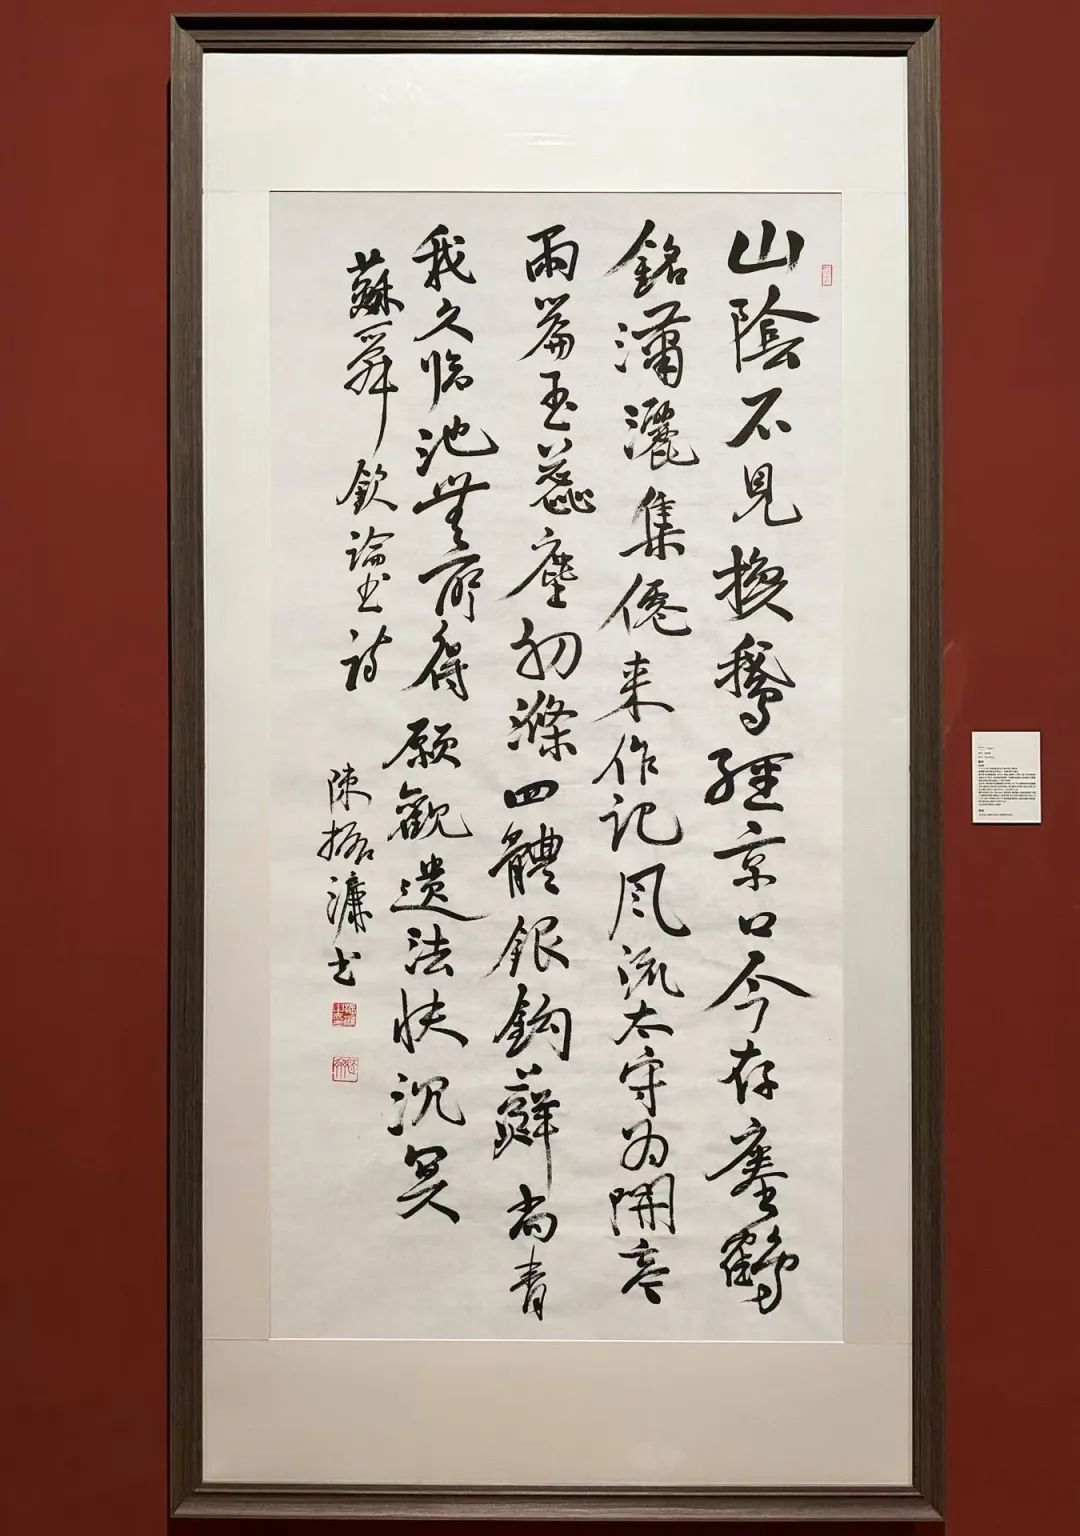 山陰不見換鵝經京口今存瘞鶴
銘瀟灑集僊来作記风流太守为開亭
兩篇玉蕊塵初滌四體銀鈎蘚尚青
我久临池無所得願觀遗法快沉冥
蘇舜欽論书诗
陳振濂书